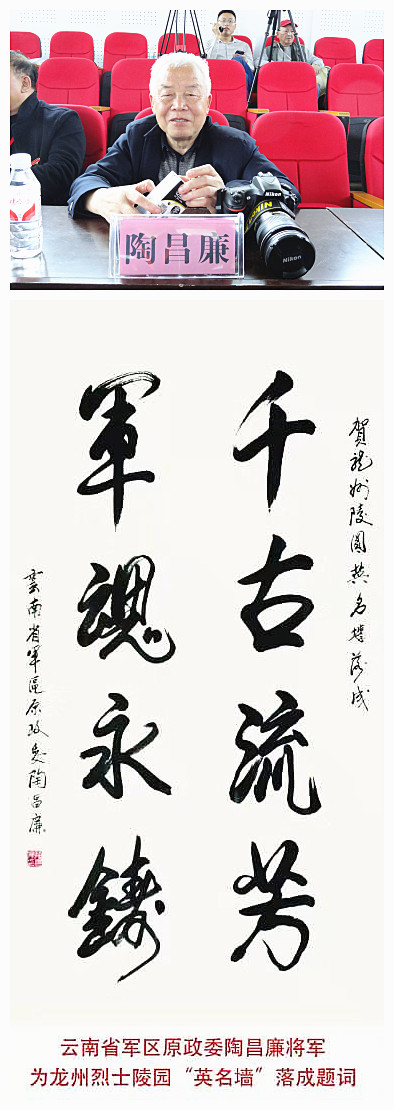 陶昌廉
Nikon
Nikon
賀龍州陵園英名墻落成
千古流芳
軍魂永鑄
雲南省軍區原政委陶昌廉
云南省军区原政委陶昌廉将军
为龙州烈士陵园“英名墙”落成题词